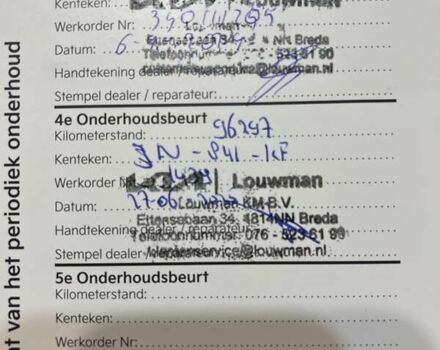 Kenteken:
Louwman
Werkorder Nr:
Ettensebaan 34, NN Breda
Datum: 6-
Telefoonnummer: 523 61 90
Handtekening dealer / reparateur:
@louwman.nl
Stempel dealer / reparateur:
4e Onderhoudsbeurt
Kilometerstand: 96297
Kenteken: JN-841-KF
Werkorder Nr.
Louwman
Datum: 27-06
Louwman KM B.V.
Ettensebaan 34, 4814NN Breda
Handtekening dealer / reparateur:
Telefoonnummer: 076 - 523 61 90
Stempel dealer / reparateur:
klantenservice@louwman.nl
5e Onderhoudsbeurt
Kilometerstand:
Kenteken:
Werkorder Nr:
nt van het periodiek onderhoud